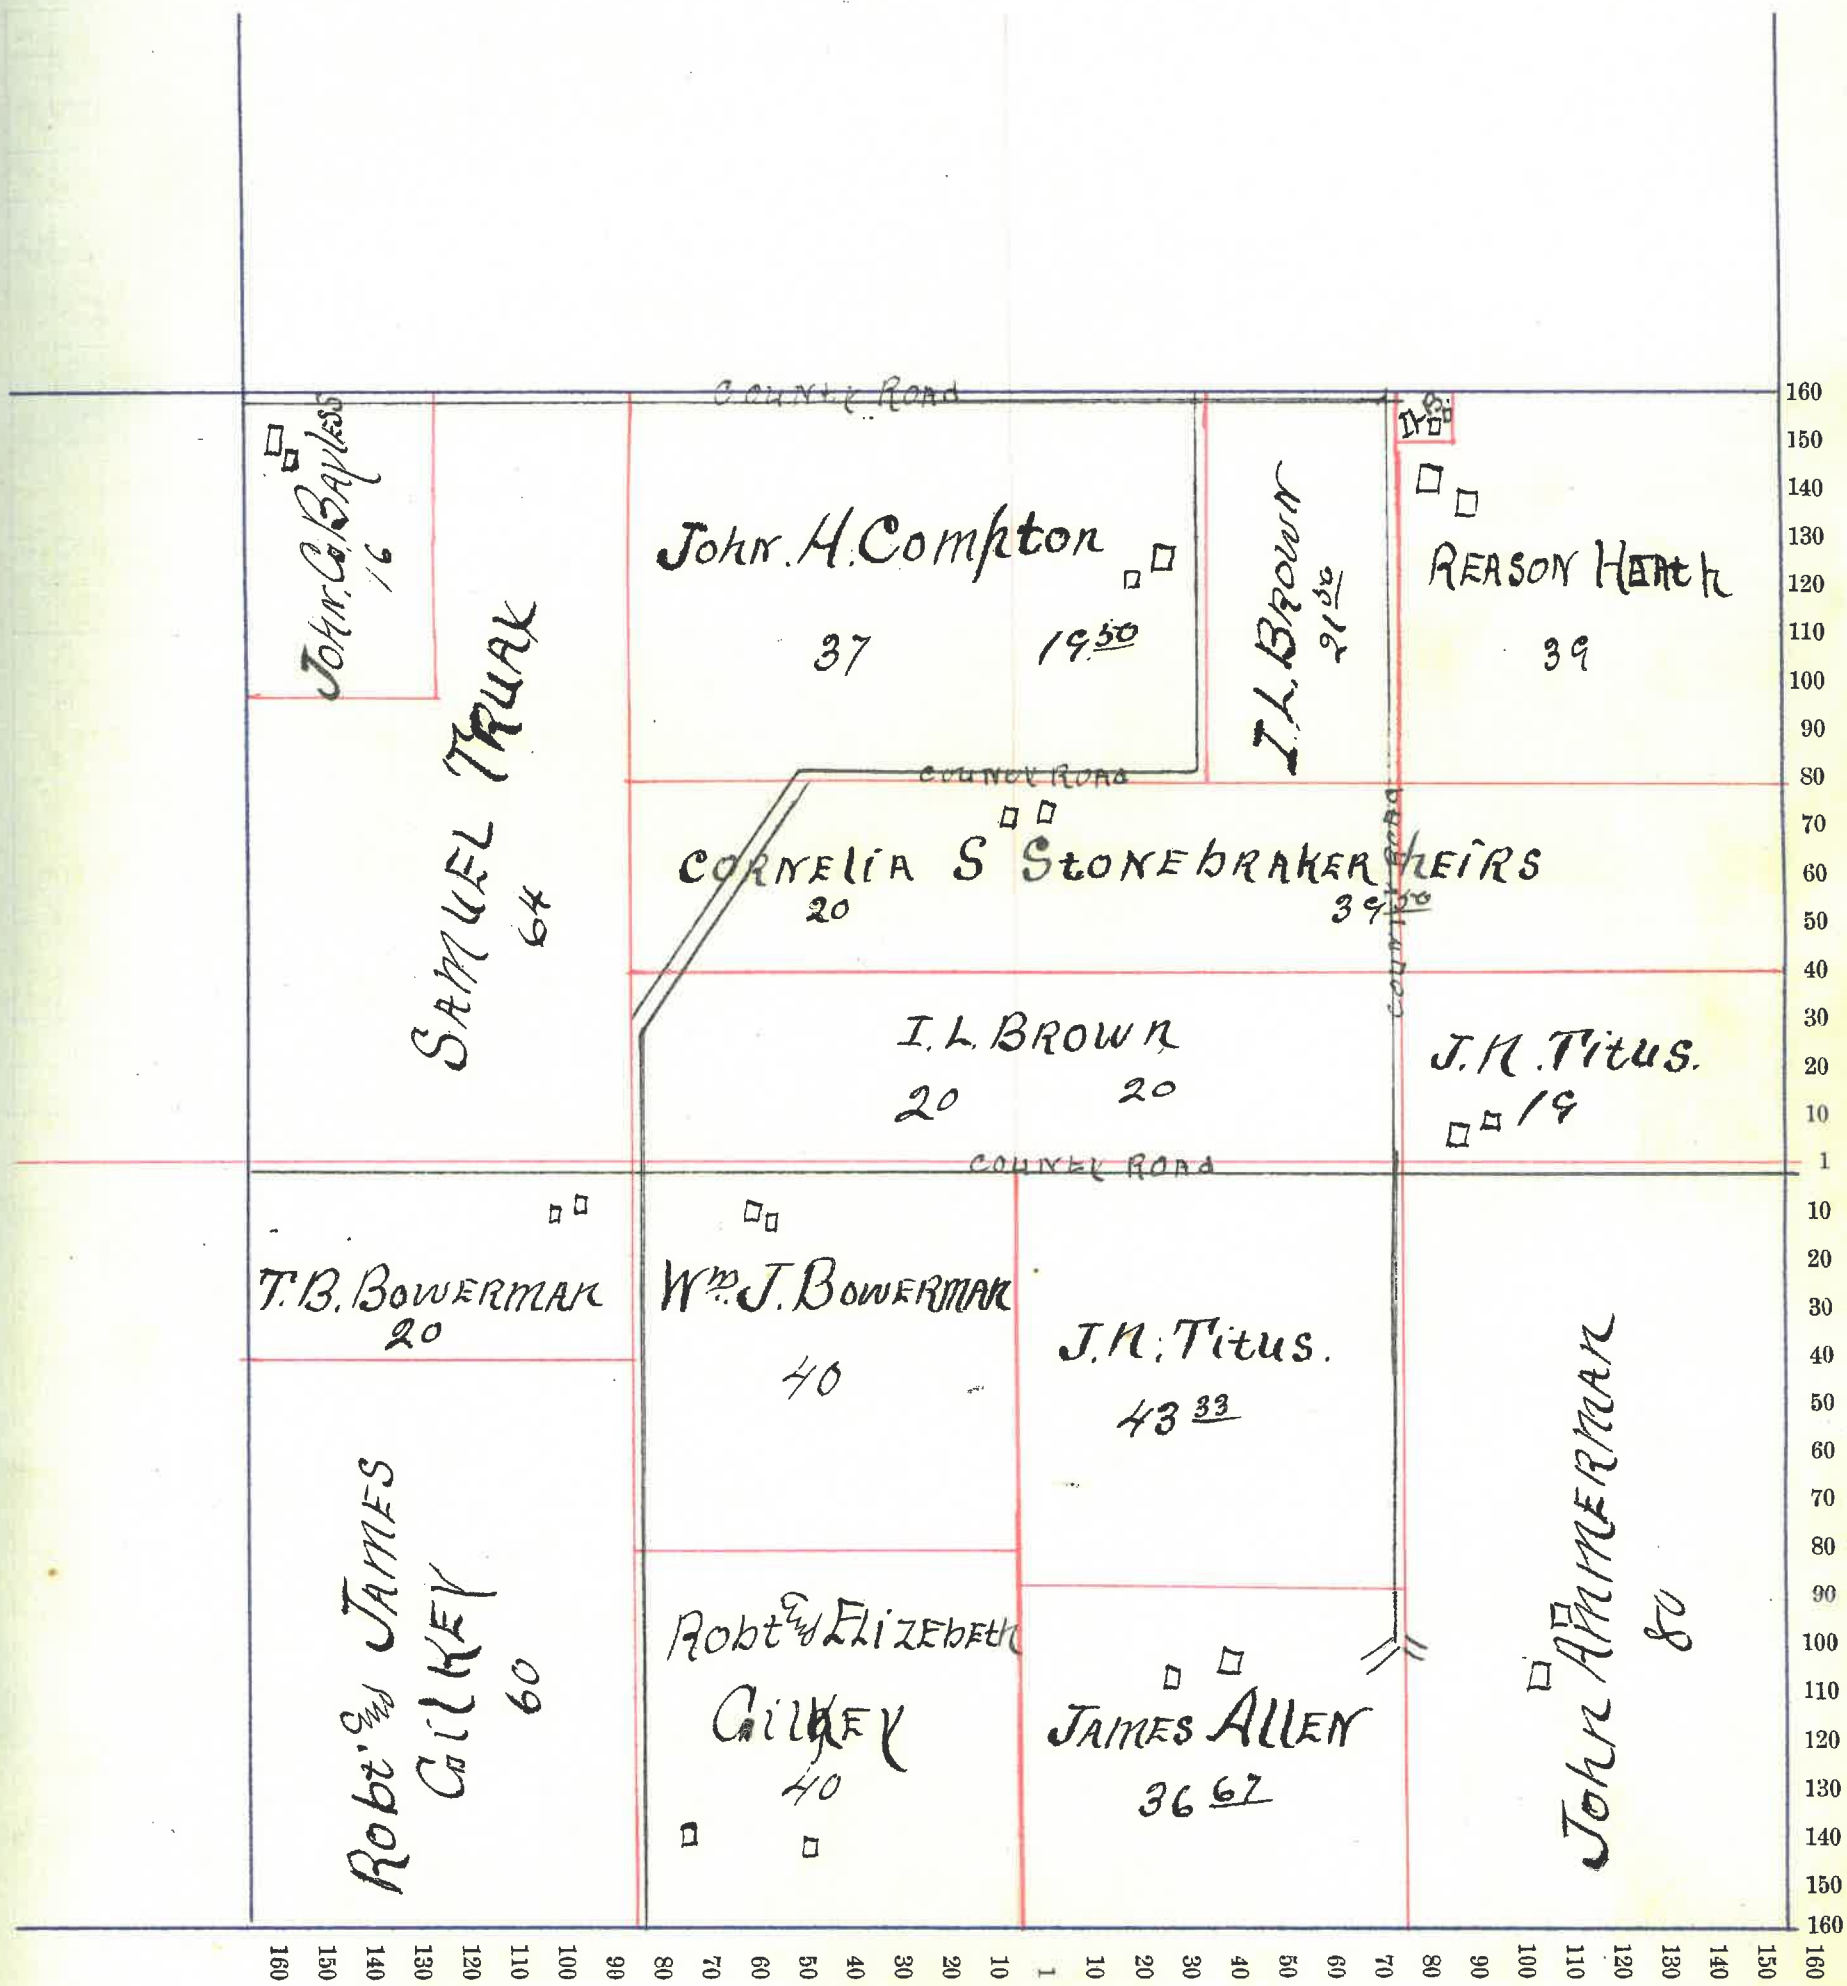 COUNty ROAd
John. C. BAylESS
16
SAMUEL TRUAX
64
John. H. Compton
37 19.50
I. L. BROWN
21 50
I L B.
REASON HEAth
39
COUNty ROAd
CORNELiA S StONEbRAKER hEiRS
20 39 50
COUNty ROAd
I. L. BROWN
20 20
J. N. Titus.
19
COUNty ROAd
T. B. BOWERMAN
20
Wm. J. BOWERMAN
40
J. N. Titus.
43 33
Robt & JAMES
GilKEY
60
Robt & ELiZEbEth
GilKEY
40
JAMES AllEN
36 67
John AMMERMAN
80
160
150
140
130
120
110
100
90
80
70
60
50
40
30
20
10
1
10
20
30
40
50
60
70
80
90
100
110
120
130
140
150
160
160 150 140 130 120 110 100 90 80 70 60 50 40 30 20 10 1 10 20 30 40 50 60 70 80 90 100 110 120 130 140 150 160